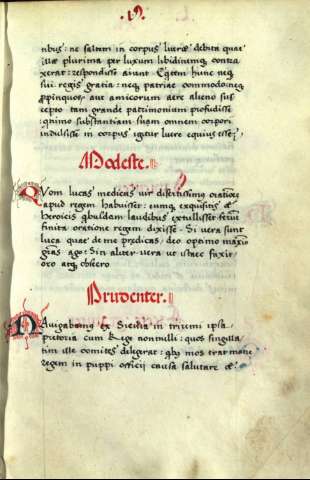 19
tibus: ne saltem in corpus lueret debita quae
ille plurima per luxum libidinemque contra
xerat: respondisse aiunt Equitem hunc neque
sui regis gratia: neque patriae commodo: neque
propinquorum, aut amicorum aere alieno sus
cepto tam grande patrimonium profudisse
: quinimo substantiam suam omnem corpori
indulsisse in corpus igitur luere equum esse:
Modeste.
QVom lucas medicus vir disertissimus oratione
apud regem habuisset: eumque exquisitis et
heroicis quibusdam laudibus extulisset fertur
finita oratione regem dixisse. Si vera sunt
luca quae de me predicas, deo optimo maximo
gratias ago: Sin aliter vera ut istaec faxit
oro atque obsecro
Prudenter.
NAuigabamus ex Sicilia in triremi ipsa
pretoria cum Rege nonnulli: quos singilla
tim ille comites delegerat: quibus mos erat mane
regem in puppi officii causa salutare et